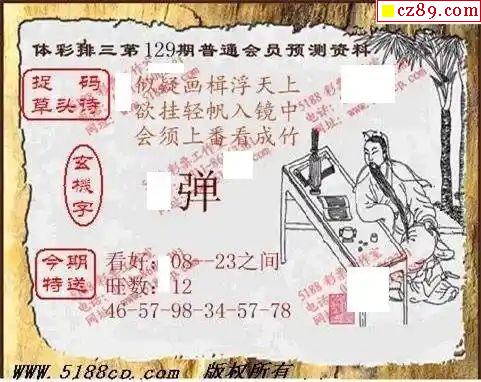 cz89.com
体彩排三第129期普通会员预测资料
捉码
草头诗
似疑画楫浮天上
欲挂轻帆入镜中
会须上番看成竹
玄機字
弹
今期
特送
看好: 08--23之间
旺数: 12
46-57-98-34-57-78
www.5188cp.com 版权所有